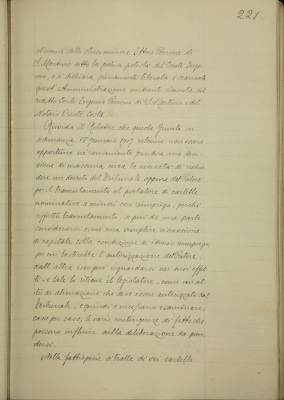 221
al nome dello stesso minore Ettore Perrone di
S. Martino sotto la patria potestà del Conte Euge-
nio, e si dichiara pienamente liberata e scaricata
quest'Amministrazione mediante ricevuta del
detto Conte Eugenio Perrone di S. Martino e del
Notaio Costa
Ricorda il Relatore che questa Giunta in
adunanza 18 gennaio 1907 ritenne non essere
opportuno nè conveniente prendere una deci-
sione di massima circa la necessità di richie-
dere un decreto del Tribunale oppure del Pretore
per il tramutamento al portatore di cartelle
nominative a minori con reimpiego, perchè
siffatto tramutamento, se può da una parte
considerarsi come una semplice riscossione
di capitale colla condizione di idoneo reimpiego
per cui basterebbe l'autorizzazione del Pretore,
dall'altra non può riguardarsi nei suoi effet-
ti - e tale lo ritiene il legislatore - come un at-
to di alienazione che deve essere autorizzato dal
Tribunale, e quindi è necessario esaminare,
caso per caso, le varie contingenze di fatto che
possono influire nella deliberazione da pren-
dersi.
Nella fattispecie si tratta di sei cartelle